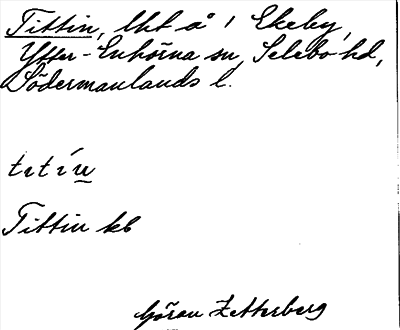 Tittin, lht å 1 Ekeby,
Ytter-Enhörna sn, Selebo hd,
Södermanlands l.
títíṉ
Tittin kb
Göran Zetterberg